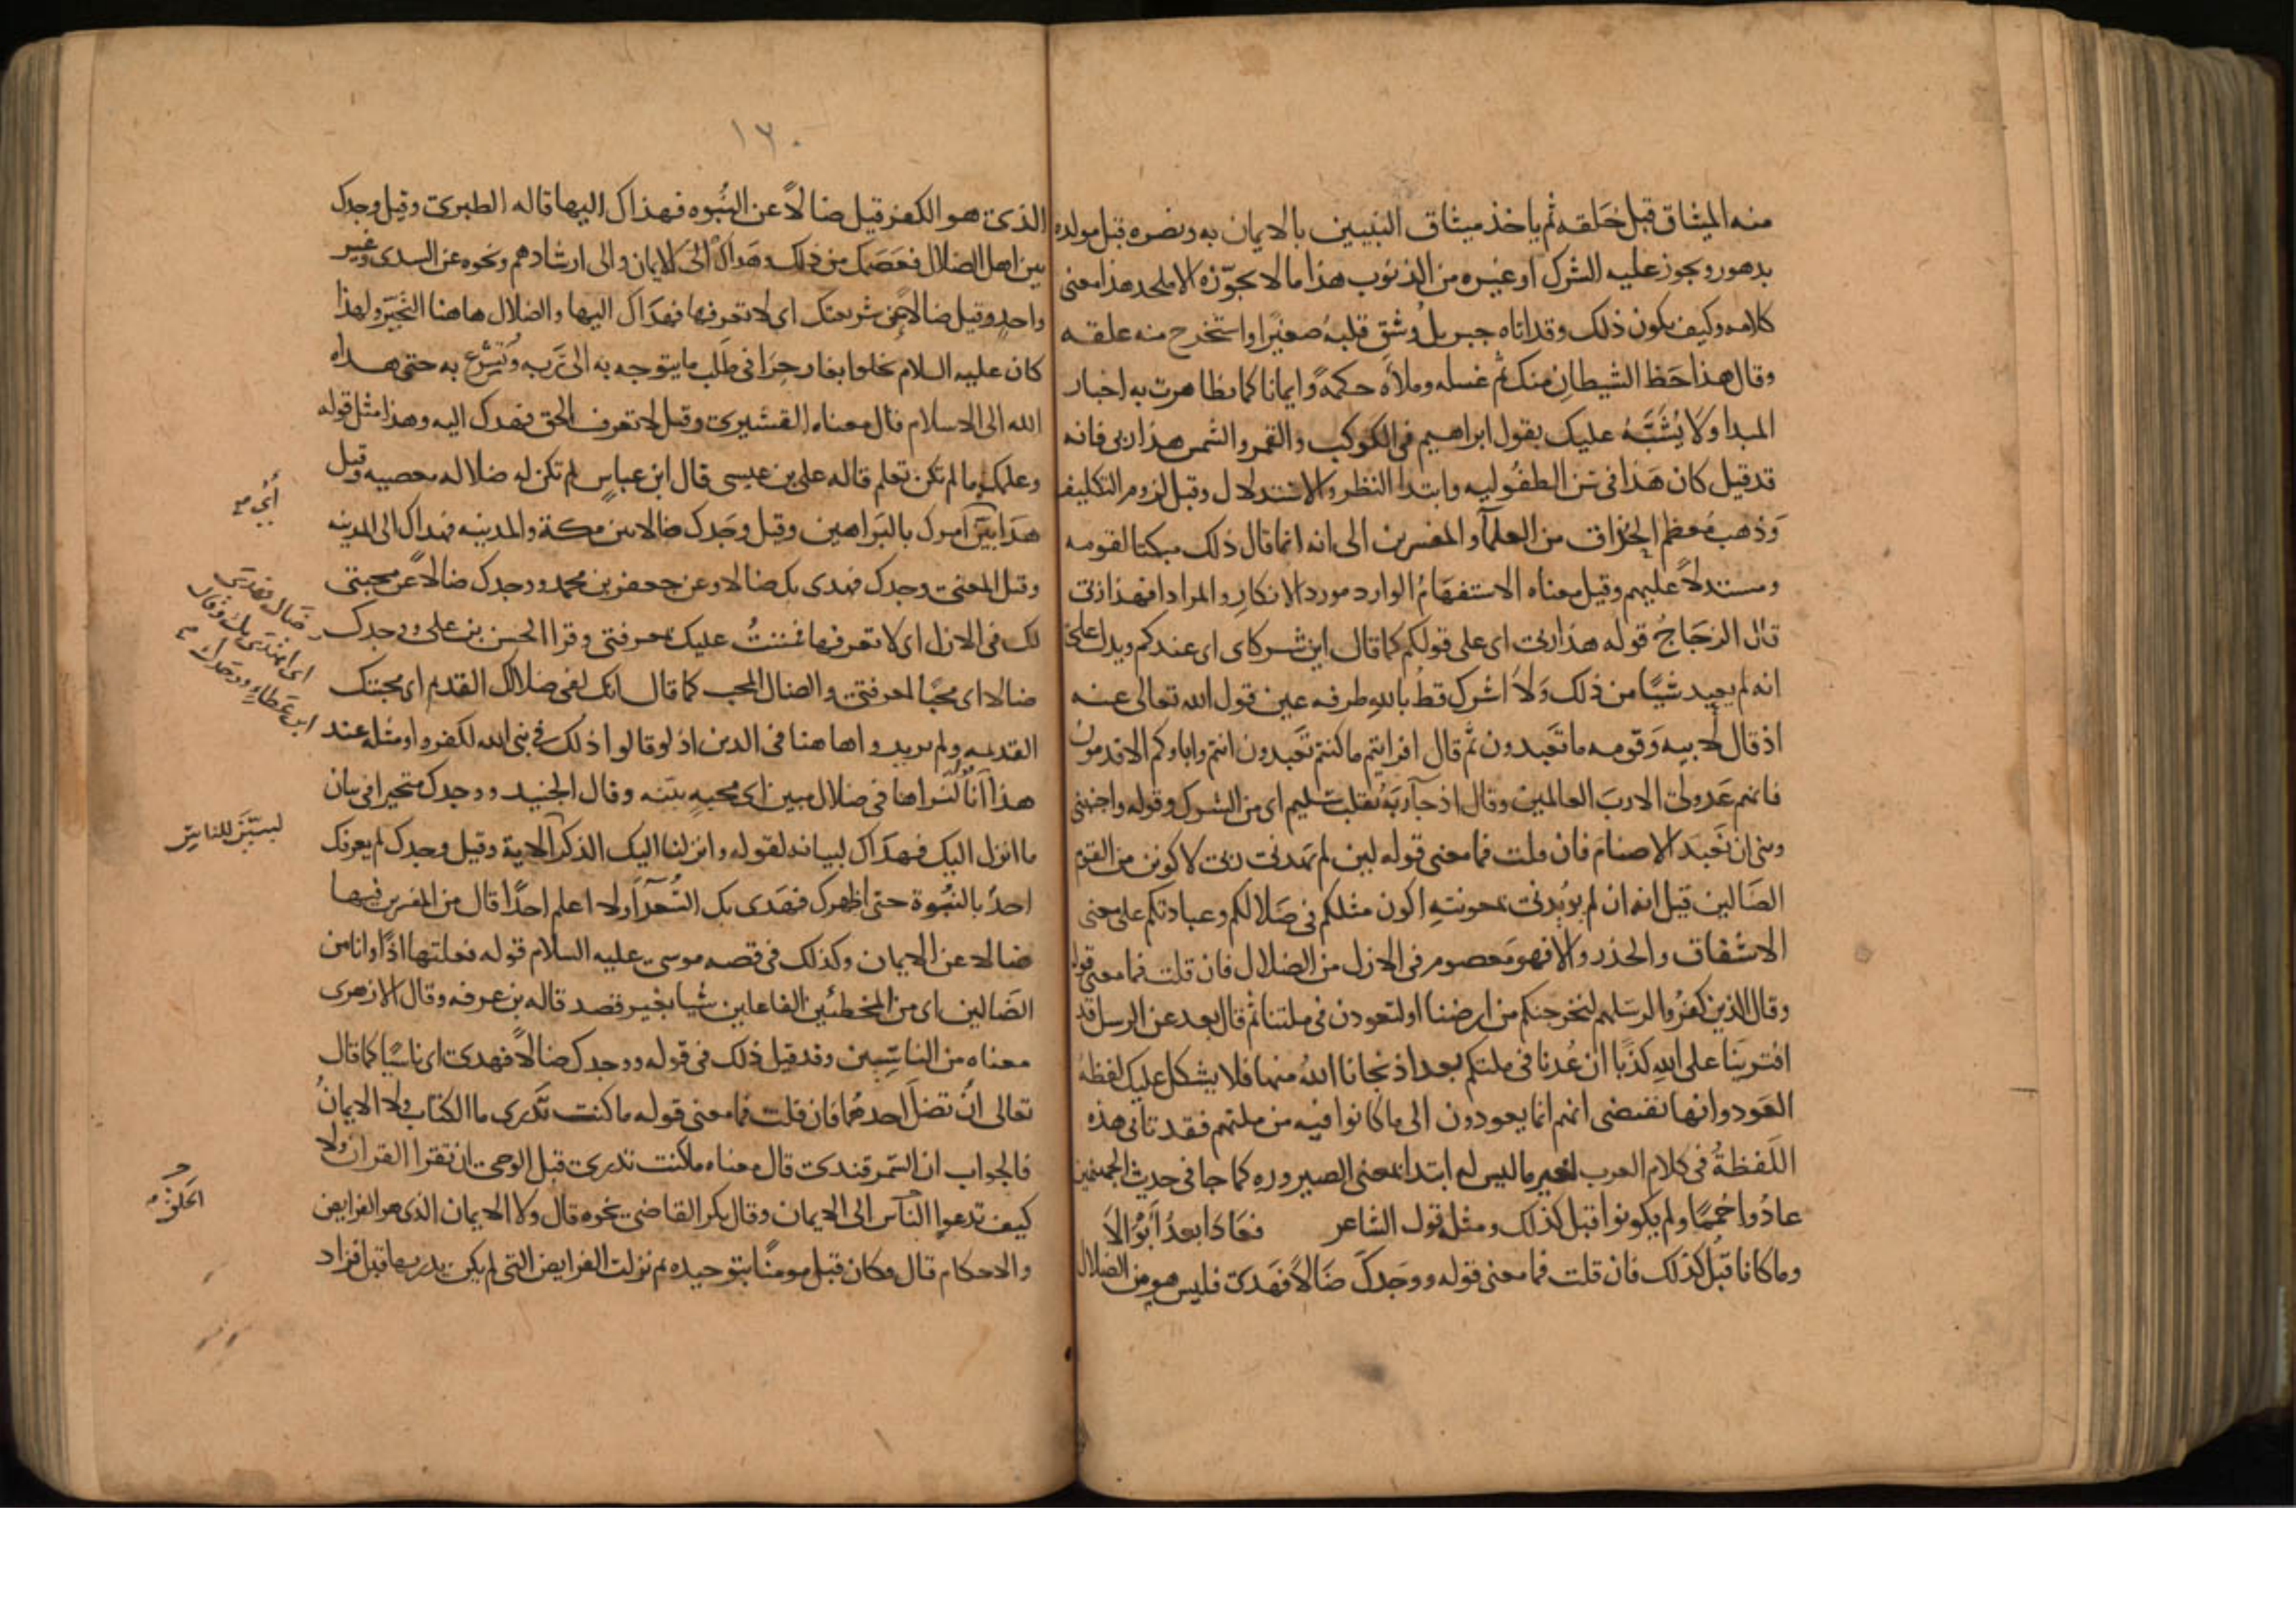 منه الميثاق قبل خلقه ثم ياخذ ميثاق النبيين بالايمان به ونصره قبل مولده
بدهور ويجوز عليه الشرك او غيره من الذنوب هذا ما لا يجوّزه الا ملحد هذا معنى
كلامه وكيف يكون ذلك وقد اتاه جبريل وشق قلبه صغيرا واستخرج منه علقه
وقال هذا حظ الشيطان منك ثم غسله وملأه حكمةً وايمانا كما تظاهرت به اخبار
المبدا ولا يُشَبَّهُ عليك بقول ابراهيم فى الكوكب والقمر والشمس هذا ربى فانه
قد قيل كان هذا فى سن الطفوليه وابتدا النظر والاستدلال وقبل لزوم التكليف
وذهب معظم الحذاق من العلمآ والمفسرين الى انه انما قال ذلك مبكتا لقومه
ومستدلاً عليهم وقيل معناه الاستفهام الوارد مورد الانكار والمراد افهذا ربى
قال الزجاج قوله هذا ربى اى على قولكم كما قال اين شركاى اى عندكم ويدل على
انه لم يعبد شيًا من ذلك ولا اشرك قط بالله طرفه عين قول الله تعالى عنه
اذ قال لابيه وقومه ما تعبدون ثم قال افرايتم ما كنتم تعبدون انتم واباوكم الاقدمون
فانهم عدو لى الا رب العالمين وقال اذ جآ ربه بقلب سليم اى من الشرك وقوله واجنبنى
وبنى ان نعبد الاصنام فان قلت فما معنى قوله لين لم يهدنى ربى لاكونن من القوم
الضالين قيل انه ان لم يويدنى بمعونته اكون مثلكم فى ضلالكم وعبادتكم على معنى
الاشفاق والحذر والا فهو معصوم فى الازل من الضلال فان قلت فما معنى قوله
وقال الذين كفروا لرسلهم لنخرجنكم من ارضنا او لتعودن فى ملتنا ثم قال بعد عن الرسل قد
افترينا على الله كذبًا ان عُدنا فى ملتكم بعد اذ نجانا الله منها فلا يشكل عليك لفظه
العود وانها تقتضى انهم انما يعودون الى ما كانوا فيه من ملتهم فقد تاتى هذه
اللفظةُ فى كلام العرب لغير ما ليس له ابتدا بمعنى الصيروره كما جا فى حديث الجهنميين
عادُوا حُممًا ولم يكونوا قبل كذلك ومثله قول الشاعر فعادا بعدُ ابوالا
وما كانا قبل كذلك فان قلت فما معنى قوله ووجدك ضالاً فهدى فليس هو من الضلال
١٢٠
الذى هو الكفر قيل ضالاً عن النُّبوه فهداك اليها قاله الطبرى وقيل وجدك
بين اهل الضلال فعصمك من ذلك وهداك الى الايمان والى ارشادهم ونحوه عن السدى وغير
واحدٍ وقيل ضالا عن شريعتك اى لا تعرفها فهداك اليها والضلال هاهنا التحيّر ولهذا
كان عليه السلام يخلوا بغار حِرَا فى طلب ما يتوجه به الى ربه ويتشرع به حتى هداه
الله الى الاسلام قال معناه القشيرى وقيل لا تعرف الحق فهداك اليه وهذا مثل قوله
وعلمك ما لم تكن تعلم قاله على بن عيسى قال ابن عباس لم تكن له ضلاله معصيه وقيل
هدا بيّن امرك بالبراهين وقيل وجدك ضالا بين مكة والمدينه فهداك الى المدينه
وقيل المعنى وجدك فهدى بك ضالا وعن جعفر بن محمد ووجدك ضالاً عن محبتى
لك فى الازل اى لا تعرفها فمننتُ عليك بمعرفتى وقرا الحسن بن على ووجدك
ضالا اى محبًا لمعرفتى والضال المحب كما قال انك لفى ضلالك القديم اى محبتك
القديمه ولم يريدوا هاهنا فى الدين اذ لو قالوا ذلك فى نبى الله لكفروا ومثله عند
هذا انا لنراها فى ضلال مبين اى محبهٍ بينه وقال الجنيد ووجدك متحيرا فى بيان
ما انزل اليك فهداك لبيانه لقوله وانزلنا اليك الذكر الاية وقيل وجدك لم يعرفك
احدٌ بالنبوة حتى اظهرك فهدى بك السُّعدآ ولا اعلم احدًا قال من المفسرين فيها
ضالا عن الايمان وكذلك فى قصه موسى عليه السلام قوله فعلتها اذًا وانا من
الضالين اى من المخطئين الفاعلين شيا بغير قصد قاله بن عرفه وقال الازهرى
معناه من الناسين وقد قيل ذلك فى قوله ووجدك ضالاً فهدى اى ناسيًا كما قال
تعالى ان تضل احدهما فان قلت فما معنى قوله ما كنت تدرى ما الكتاب ولا الايمانُ
فالجواب ان السمرقندى قال معناه ما كنت تدرى قبل الوحى ان تقرا القران ولا
كيف تدعوا الناس الى الايمان وقال بكر القاضى نحوه قال ولا الايمان الذى هو الفرايض
والاحكام قال وكان قبل مومنًا بتوحيده ثم نزلت الفرايض التى لم يكن يدريها قبل فزاد
ضال فهدى
اى اهتدى بك وقال
ابن عطاءٍ ووجدك
لتبيّن للناسِ